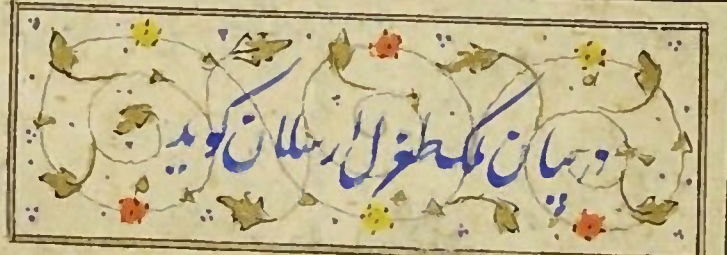 در بیان ملک طغرل ارسلان کوید